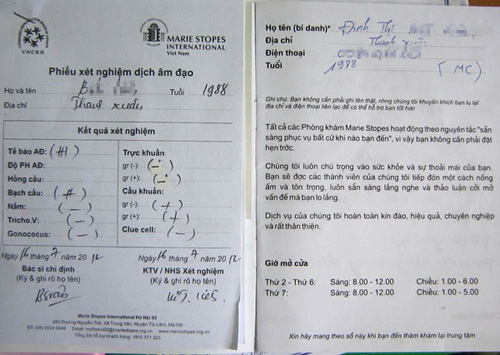 VNCRH
MARIE STOPES
INTERNATIONAL
Việt Nam
Phiếu xét nghiệm dịch âm đạo
Họ và tên
Tuổi 1988
Địa chỉ Thanh xuân
Kết quả xét nghiệm
Tế bào AĐ:
Độ PH AĐ:
Hồng cầu:
Bạch cầu:
Nấm: (-)
Tricho.V: (-)
Gonococus: (-)
Trực khuẩn
gr (-): (-)
gr (+): (-)
Cầu khuẩn:
gr (-): (+)
gr (+): (+)
Clue cell: (-)
Ngày 16 tháng 7 năm 2012
Ngày 16 tháng 7 năm 2012
Bác sĩ chỉ định
(Ký & ghi rõ họ tên)
KTV / NHS Xét nghiệm
(Ký & ghi rõ họ tên)
Marie Stopes International Hà Nội
Họ tên (bí danh)* Đinh Thị
Địa chỉ Thanh xuân
Điện thoại
Tuổi 1988 (MC)
Ghi chú: Bạn không cần phải ghi tên thật, nhưng chúng tôi khuyến khích bạn lưu lại
địa chỉ và điện thoại liên lạc để có thể hỗ trợ bạn tốt hơn
Tất cả các Phòng khám Marie Stopes hoạt động theo nguyên tắc "sẵn
sàng phục vụ bất cứ khi nào bạn đến", vì vậy bạn không cần phải đặt
hẹn trước.
Chúng tôi luôn chú trọng vào sức khỏe và sự thoải mái của bạn.
Bạn sẽ đợc các thành viên của chúng tôi tiếp đón một cách nồng
ấm và tôn trọng, luôn sẵn sàng lắng nghe và thảo luận cởi mở
vấn đề mà bạn lo lắng.
Dịch vụ của chúng tôi hoàn toàn kín đáo, hiệu quả, chuyên nghiệp
và rất thân thiện.
Giờ mở cửa
Thứ 2 - Thứ 6: Sáng: 8.00 - 12.00 Chiều: 1.00 - 6.00
Thứ 7: Sáng: 8.00 - 12.00 Chiều: 1.00 - 5.00
Xin hãy mang theo sổ này khi bạn đến thăm khám tại trung tâm